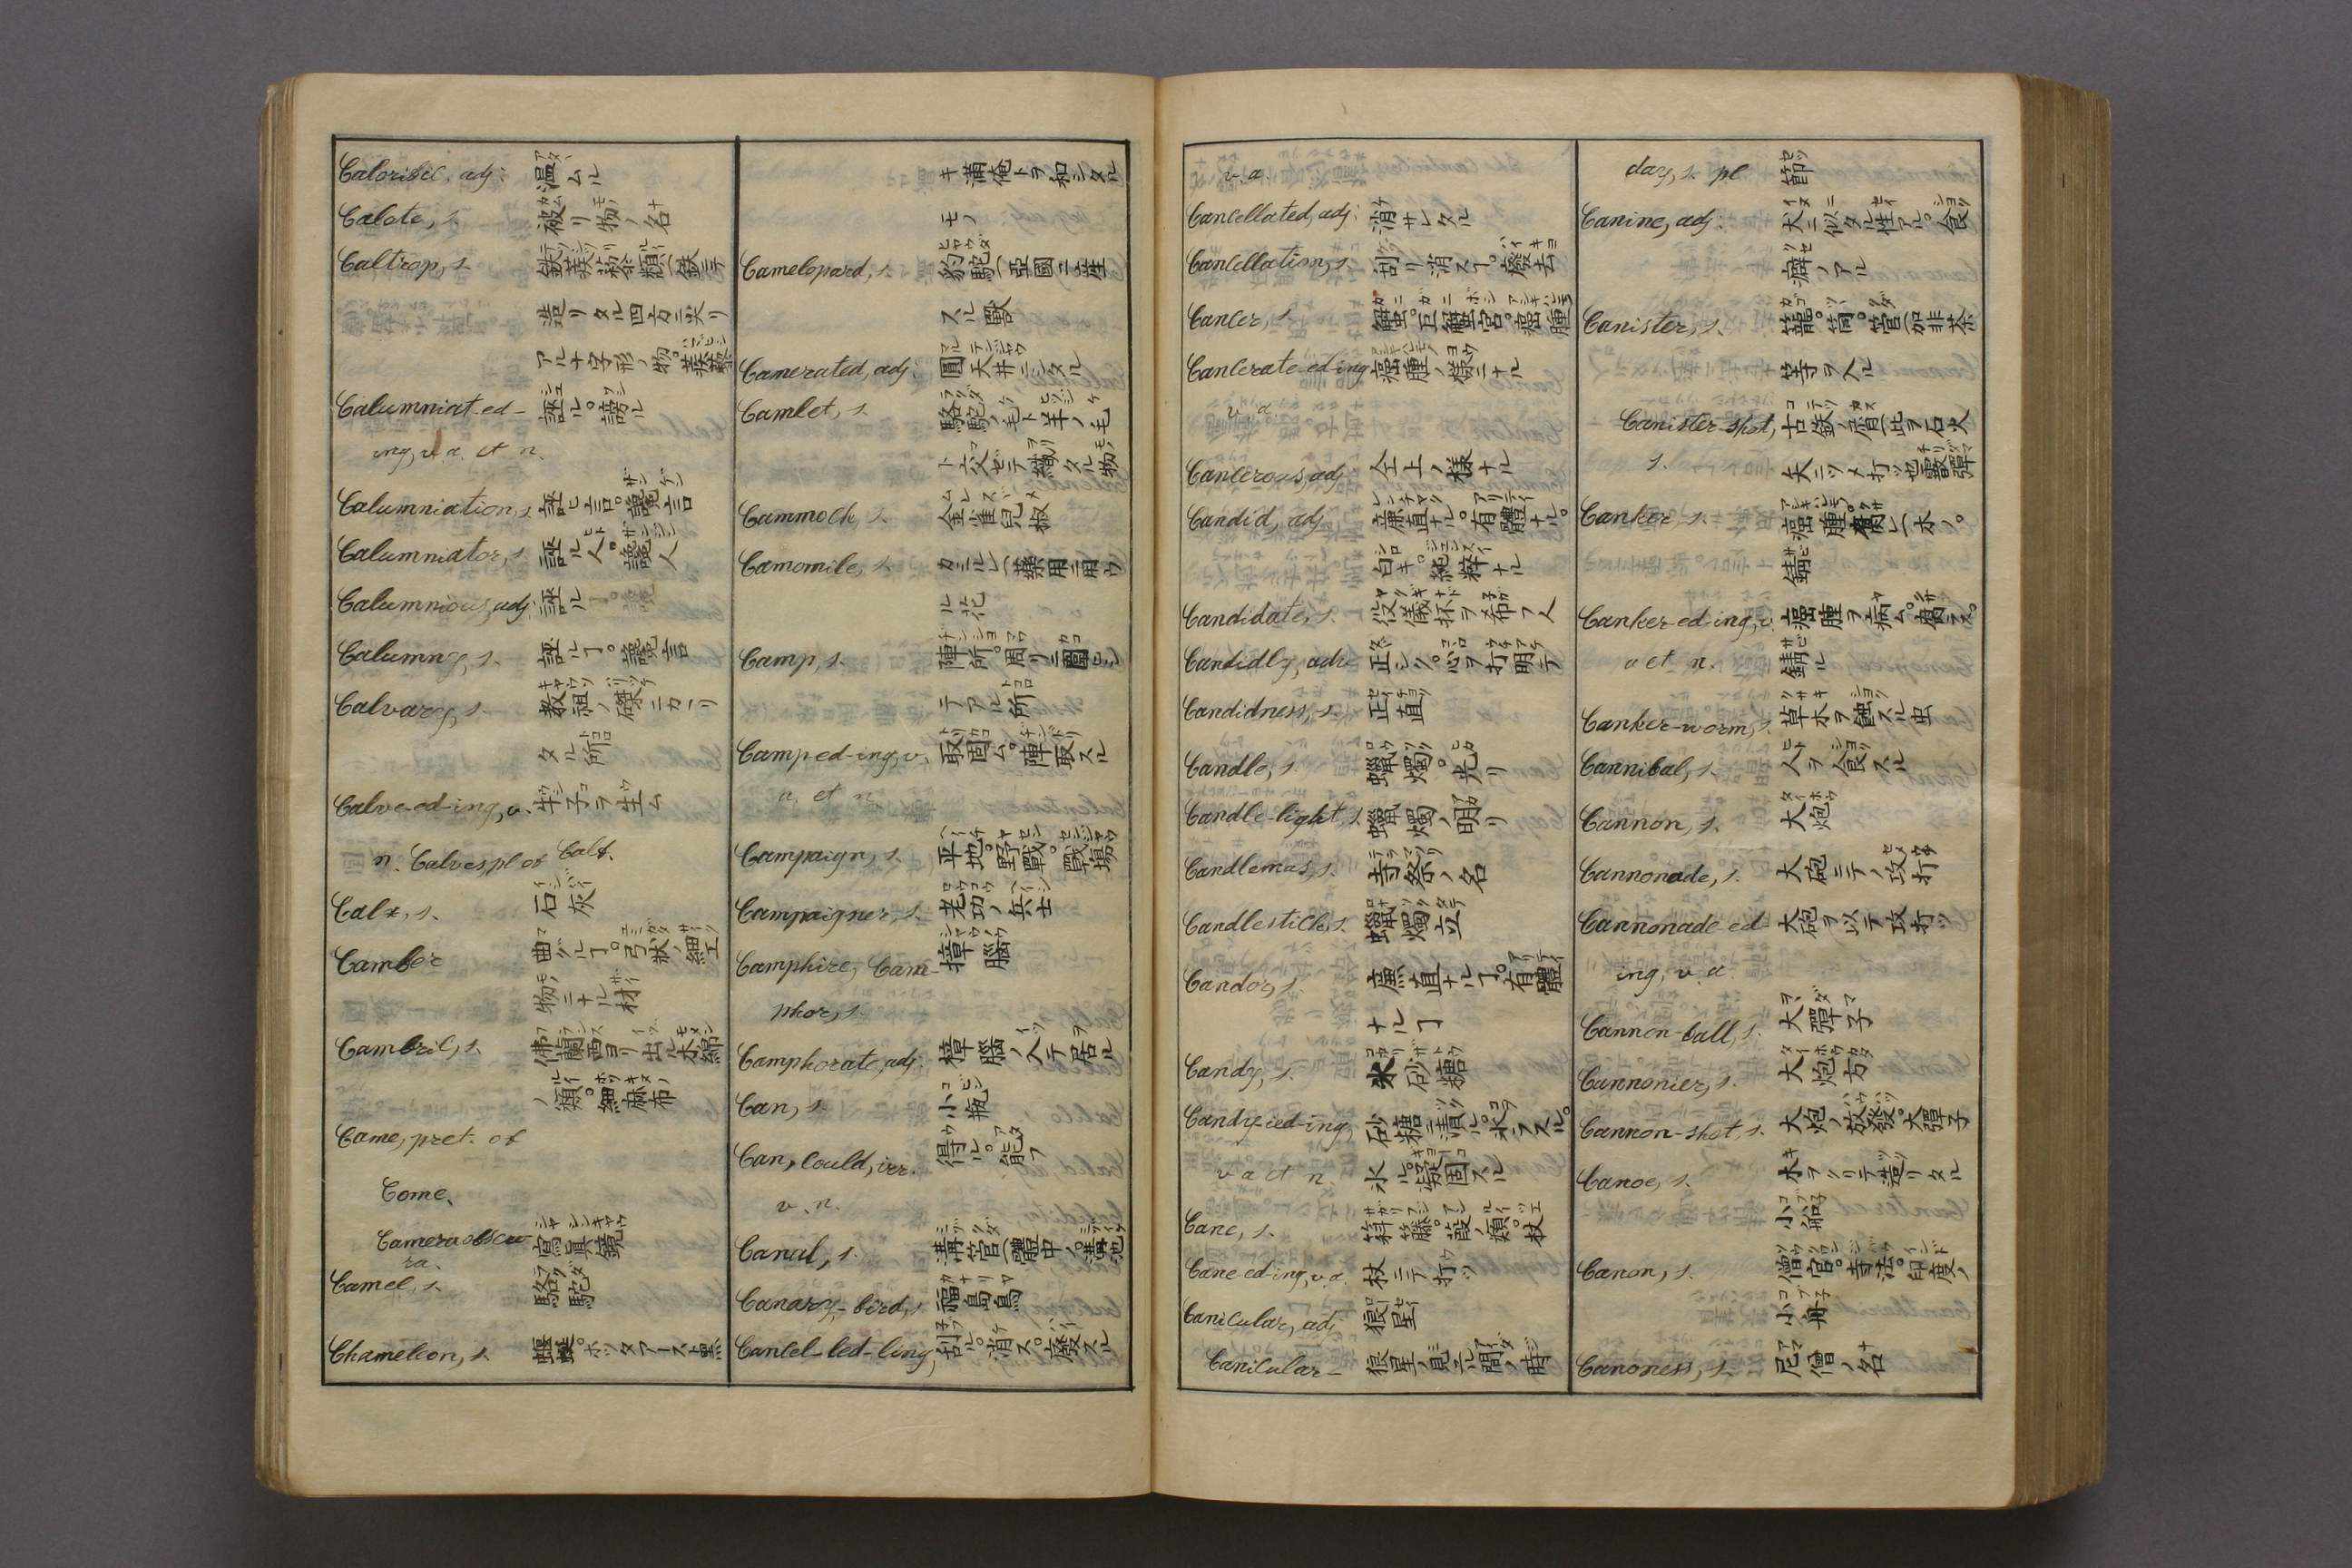 Calorific, adj: 温ムル
Calote, s. 被リ物ノ名
Caltrop, s. 鉄蒺藜類(鉄ニテ
造リタル四方ニ尖リ
アル十字形ノ物。蒺藜
Calumniat-ed- 誣ル。謗ル
ing, v. a. et n.
Calumniation, s. 誣ヒ言。讒言
Calumniator, s. 誣ル人。讒人
Calumnious, adj: 誣ル
Calumny, s. 誣ルヿ。讒言
Calvary, s. 教祖ノ磔ニカヽリ
タル所
Calve-ed-ing, v. 牛子ヲ生ム
n. Calves, pl of Calf.
Calx, s. 石灰
Camber 曲グルヿ。弓状ノ細工
物ニナル材
Cambric, s. 佛蘭西ヨリ出ル木綿
ノ類。細麻布
Came, pret. of
Come.
Camera obscu 寫眞鏡
ra.
Camel, s. 駱駝
Chameleon, s.
キ満俺トヲ和シタル
モノ
Camelopard, s. 豹駝(亞國ニ産
スル獸
Camerated, adj: 圓天井ニシタル
Camlet, s. 駱駝ノ毛ト羊ノ毛
ト交ゼテ織タル物
Cammock, s. 金雀兒椒
Camomile, s. カミルレ(藥用ニ用ウ
ル花
Camp, s. 陣所。周リニ圍ヒシ
テアル所
Camp ed-ing, v. 取固ム。陣取スル
a. et n.
Campaign, s. 平地。野戰。戰場
Campaigner, s. 老功ノ兵士
Camphire, Cam- 樟腦
phor, s.
Camphorate, adj: 樟腦ノ入テ居ル
Can, s. 小瓶
Can, Could, irr. 得ル。能フ
v. n.
Canal, s. 溝管(體中ノ。溝池
Canary-bird, s 福島鳥
Cancel-led-ling, 刮ル。消ス。廢スル
v. a.
Cancellated, adj: 消サレタル
Cancellation, s. 刮リ消スヿ。廢去
Cancer, s. 蟹。巨蟹宮。癌腫
Cancerate-ed-ing 癌腫ノ様ニナル
v. a.
Cancerous, adj 仝上ノ様ナル
Candid, adj 廉直ナル。有體ナル。
白キ。純粹ナル
Candidate, s. 役儀抔ヲ希フ人
Candidly, adv 正シク。心ヲ打明テ
Candidness, s. 正直
Candle, s. 蠟燭。光リ
Candle-light, s. 蠟燭ノ明リ
Candlemas, s. 寺祭ノ名
Candlestick, s. 蠟燭立
Candor, s. 廉直ナルヿ。有體
ナルヿ
Candy, s. 氷砂糖
Candy-ied-ing, 砂糖ニ漬ル。氷ラスル。
v a et n. 氷ル。凝固スル
Cane, s. 籐。葭ノ類。杖
Cane ed-ing, v. a. 杖ニテ打ツ
Canicular, adj 狼星
Canicular- 狼星ノ見エル間ノ時
day, s. pl 節
Canine, adj: 犬ニ似タル性アル。食
癖ノアル
Canister, s. 籠。筒。管(加非茶
等ヲ入ル
Canister-shot, 古鉄ノ屑(此ヲ石火
s. 矢ニツメ打ツ也霰彈
Canker s. 癌腫。腐レ(木ノ。
錆
Canker-ed-ing, v. 癌腫ヲ病ム。腐ス。
a et n. 錆ル
Canker-worm, s. 草木ヲ蝕スル虫
Cannibal, s. 人ヲ食スル
Cannon, s. 大炮
Cannonade, s. 大砲ニテノ攻打
Cannonade ed- 大砲ヲ以テ攻打ツ
ing, v. a.
Cannon-ball, s. 大彈子
Cannonier, s. 大炮方
Cannon-shot, s. 大炮ノ放發。大彈子
Canoe, s. 木ヲクリテ造リタル
小船
Canon, s. 僧官。寺法。印度ノ
小舟
Canoness, s. 尼僧ノ名